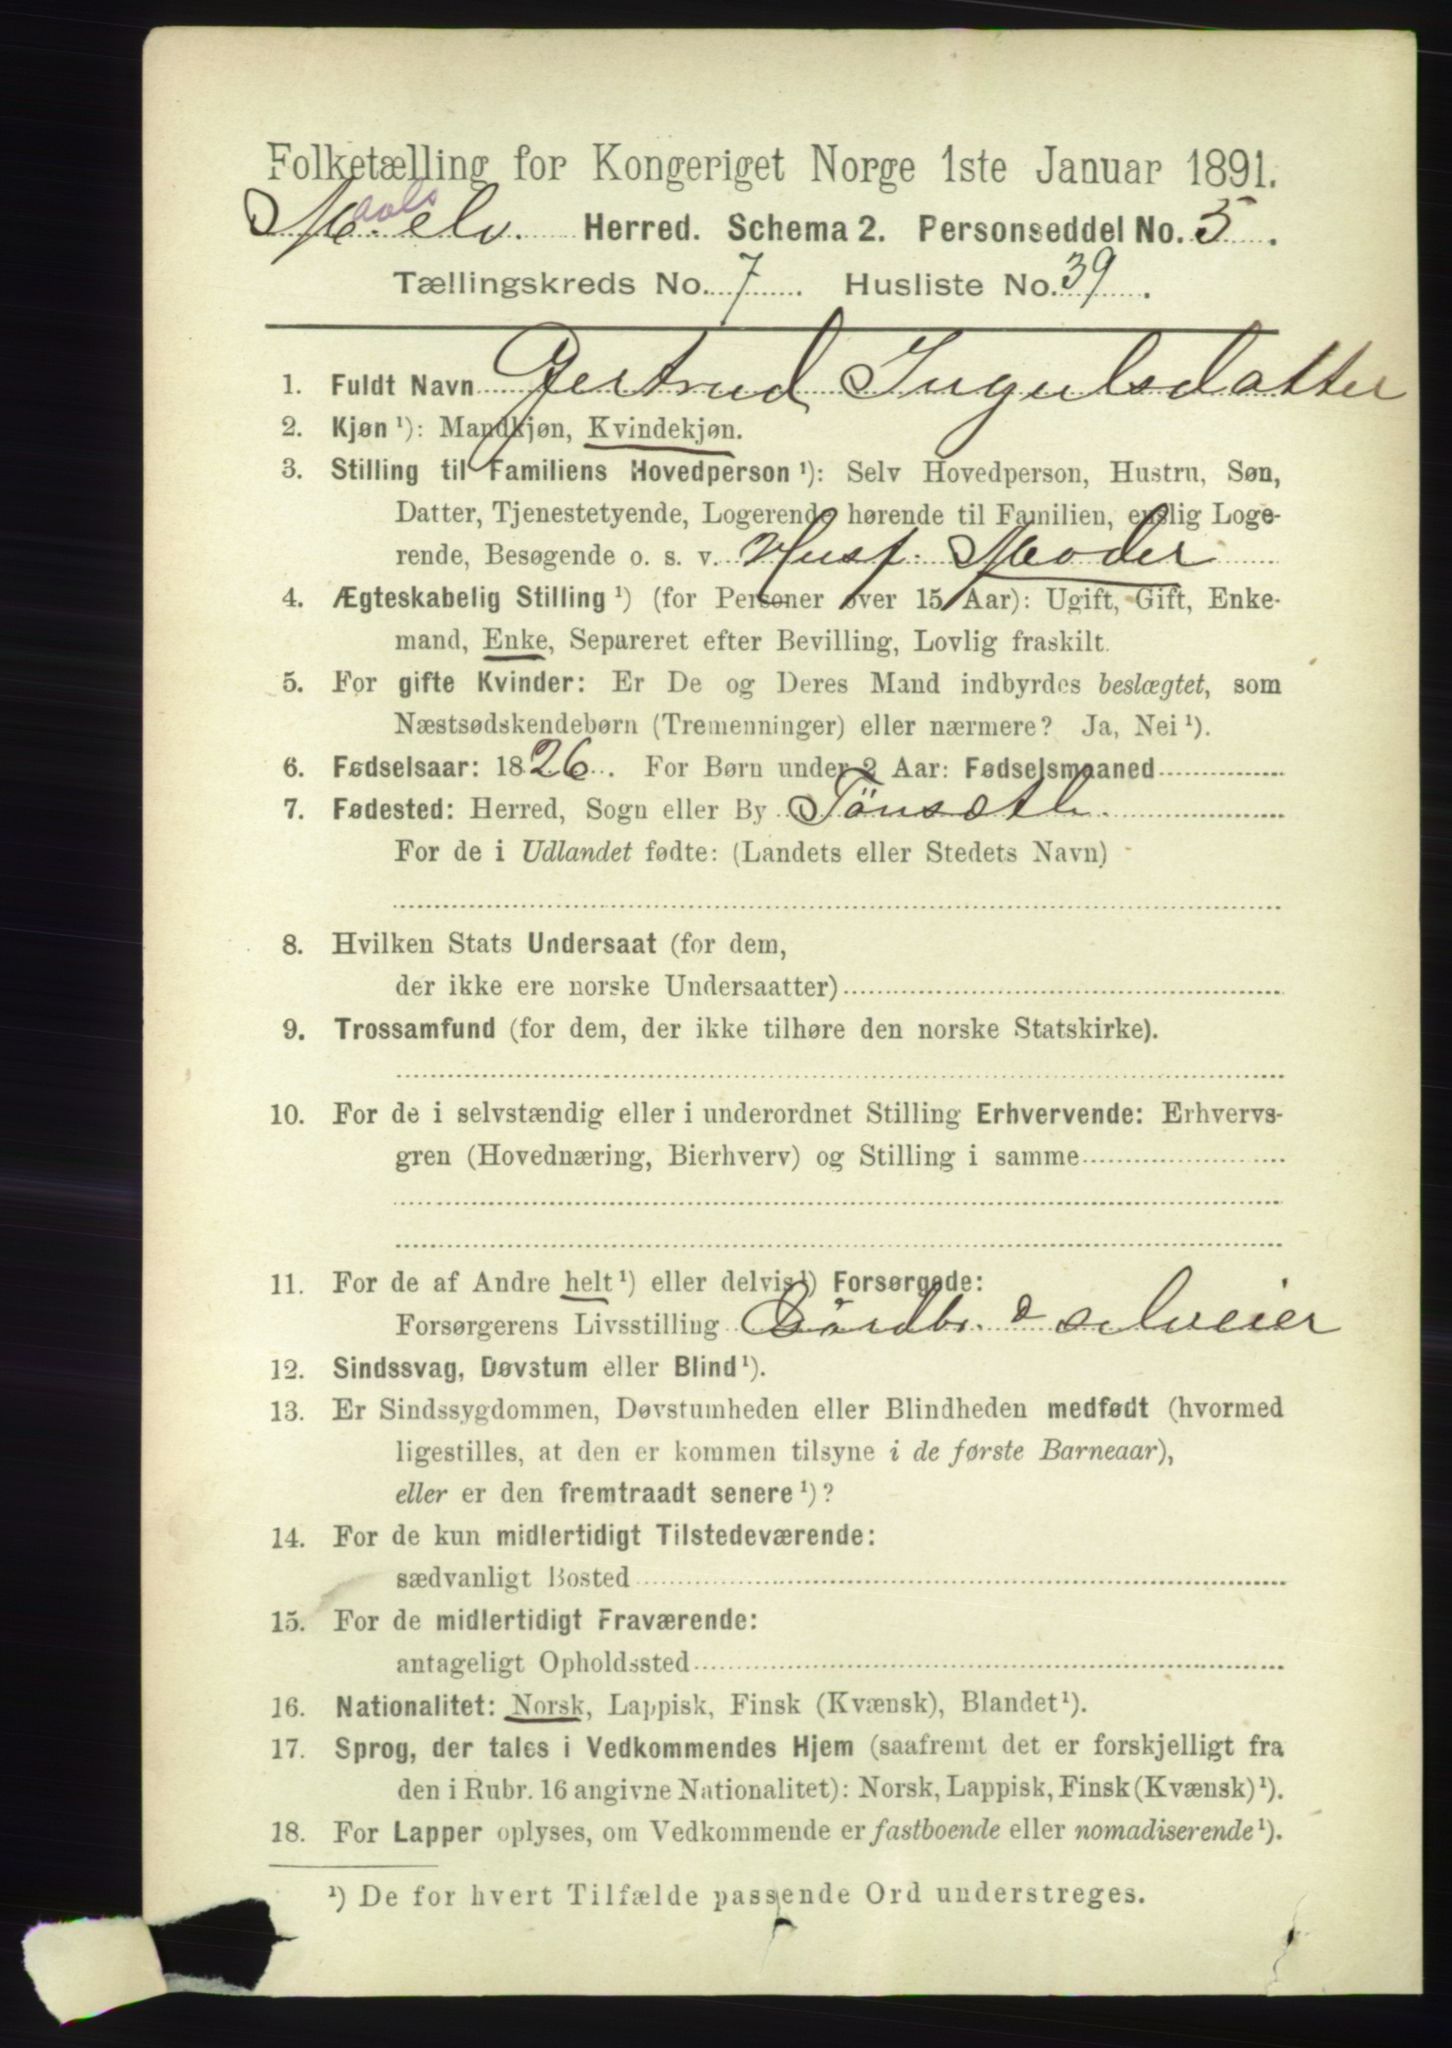 Folketælling for Kongeriget Norge 1ste Januar 1891.
Maalselv. Herred. Schema 2. Personseddel No. 5.
Tællingskreds No. 7. Husliste No. 39.
1. Fuldt Navn Gjertrud Ingulsdatter
2. Kjøn ¹): Mandkjøn, Kvindekjøn.
3. Stilling til Familiens Hovedperson ¹): Selv Hovedperson, Hustru, Søn,
Datter, Tjenestetyende, Logerende hørende til Familien, enslig Loge-
rende, Besøgende o. s. v. Husf. Moder
4. Ægteskabelig Stilling ¹) (for Personer over 15 Aar): Ugift, Gift, Enke-
mand, Enke, Separeret efter Bevilling, Lovlig fraskilt.
5. For gifte Kvinder: Er De og Deres Mand indbyrdes beslægtet, som
Næstsødskendebørn (Tremenninger) eller nærmere? Ja, Nei ¹).
6. Fødselsaar: 1826. For Børn under 2 Aar: Fødselsmaaned
7. Fødested: Herred, Sogn eller By Tönsæth.
For de i Udlandet fødte: (Landets eller Stedets Navn)
8. Hvilken Stats Undersaat (for dem,
der ikke ere norske Undersaatter)
9. Trossamfund (for dem, der ikke tilhøre den norske Statskirke).
10. For de i selvstændig eller i underordnet Stilling Erhvervende: Erhvervs-
gren (Hovednæring, Bierhverv) og Stilling i samme
11. For de af Andre helt ¹) eller delvis ¹) Forsørgede:
Forsørgerens Livsstilling Gårdbr. & selveier
12. Sindssvag, Døvstum eller Blind ¹).
13. Er Sindssygdommen, Døvstumheden eller Blindheden medfødt (hvormed
ligestilles, at den er kommen tilsyne i de første Barneaar),
eller er den fremtraadt senere ¹)?
14. For de kun midlertidigt Tilstedeværende:
sædvanligt Bosted
15. For de midlertidigt Fraværende:
antageligt Opholdssted
16. Nationalitet: Norsk, Lappisk, Finsk (Kvænsk), Blandet ¹).
17. Sprog, der tales i Vedkommendes Hjem (saafremt det er forskjelligt fra
den i Rubr. 16 angivne Nationalitet): Norsk, Lappisk, Finsk (Kvænsk) ¹).
18. For Lapper oplyses, om Vedkommende er fastboende eller nomadiserende ¹).
¹) De for hvert Tilfælde passende Ord understreges.